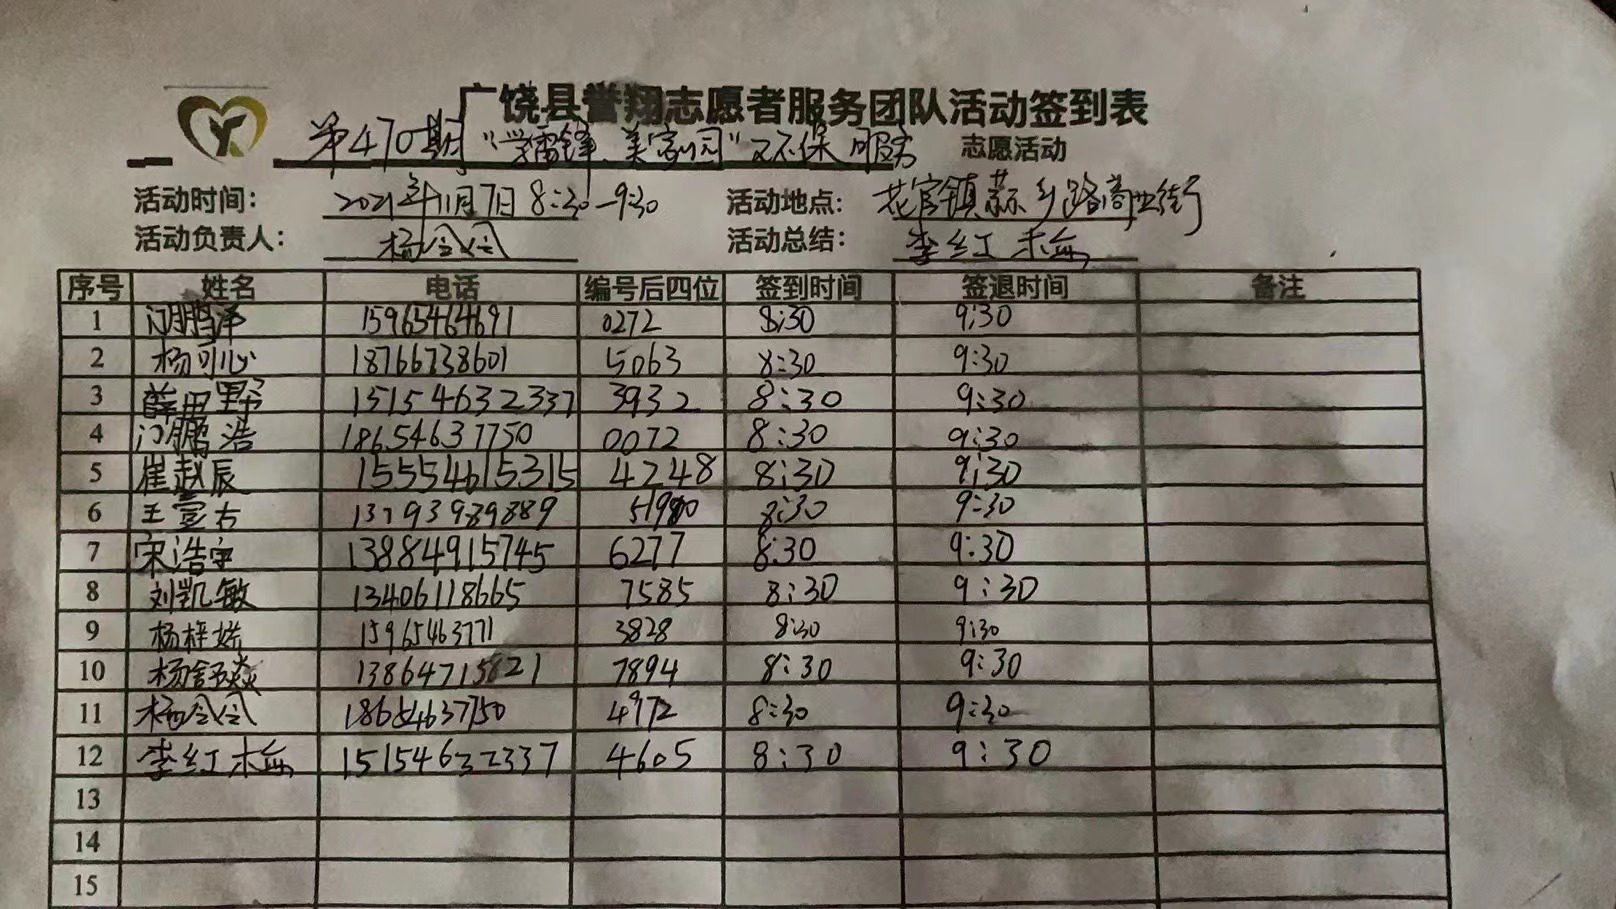 广饶县誉翔志愿者服务团队活动签到表
第470期“学雷锋、美家园”环保服务 志愿活动
活动时间: 2021年11月7日 8:30-9:30 活动地点: 花官镇蒜乡路商业街
活动负责人: 杨令令 活动总结: 李红梅
序号 姓名 电话 编号后四位 签到时间 签退时间 备注
1 门鹏泽 15965464691 0272 8:30 9:30
2 杨可心 18766738601 5063 8:30 9:30
3 薛田野 15154632337 3932 8:30 9:30
4 门鹏浩 18654637750 0072 8:30 9:30
5 崔赵辰 15554615315 4248 8:30 9:30
6 王宣右 13793989889 8:30 9:30
7 宋浩宇 13884915745 6277 8:30 9:30
8 刘凯敏 13406118665 7585 8:30 9:30
9 杨梓 15965463771 3828 8:30 9:30
10 杨舒焱 7894 8:30 9:30
11 杨令令 18654637750 4972 8:30 9:30
12 李红梅 15154632337 4605 8:30 9:30
13
14
15